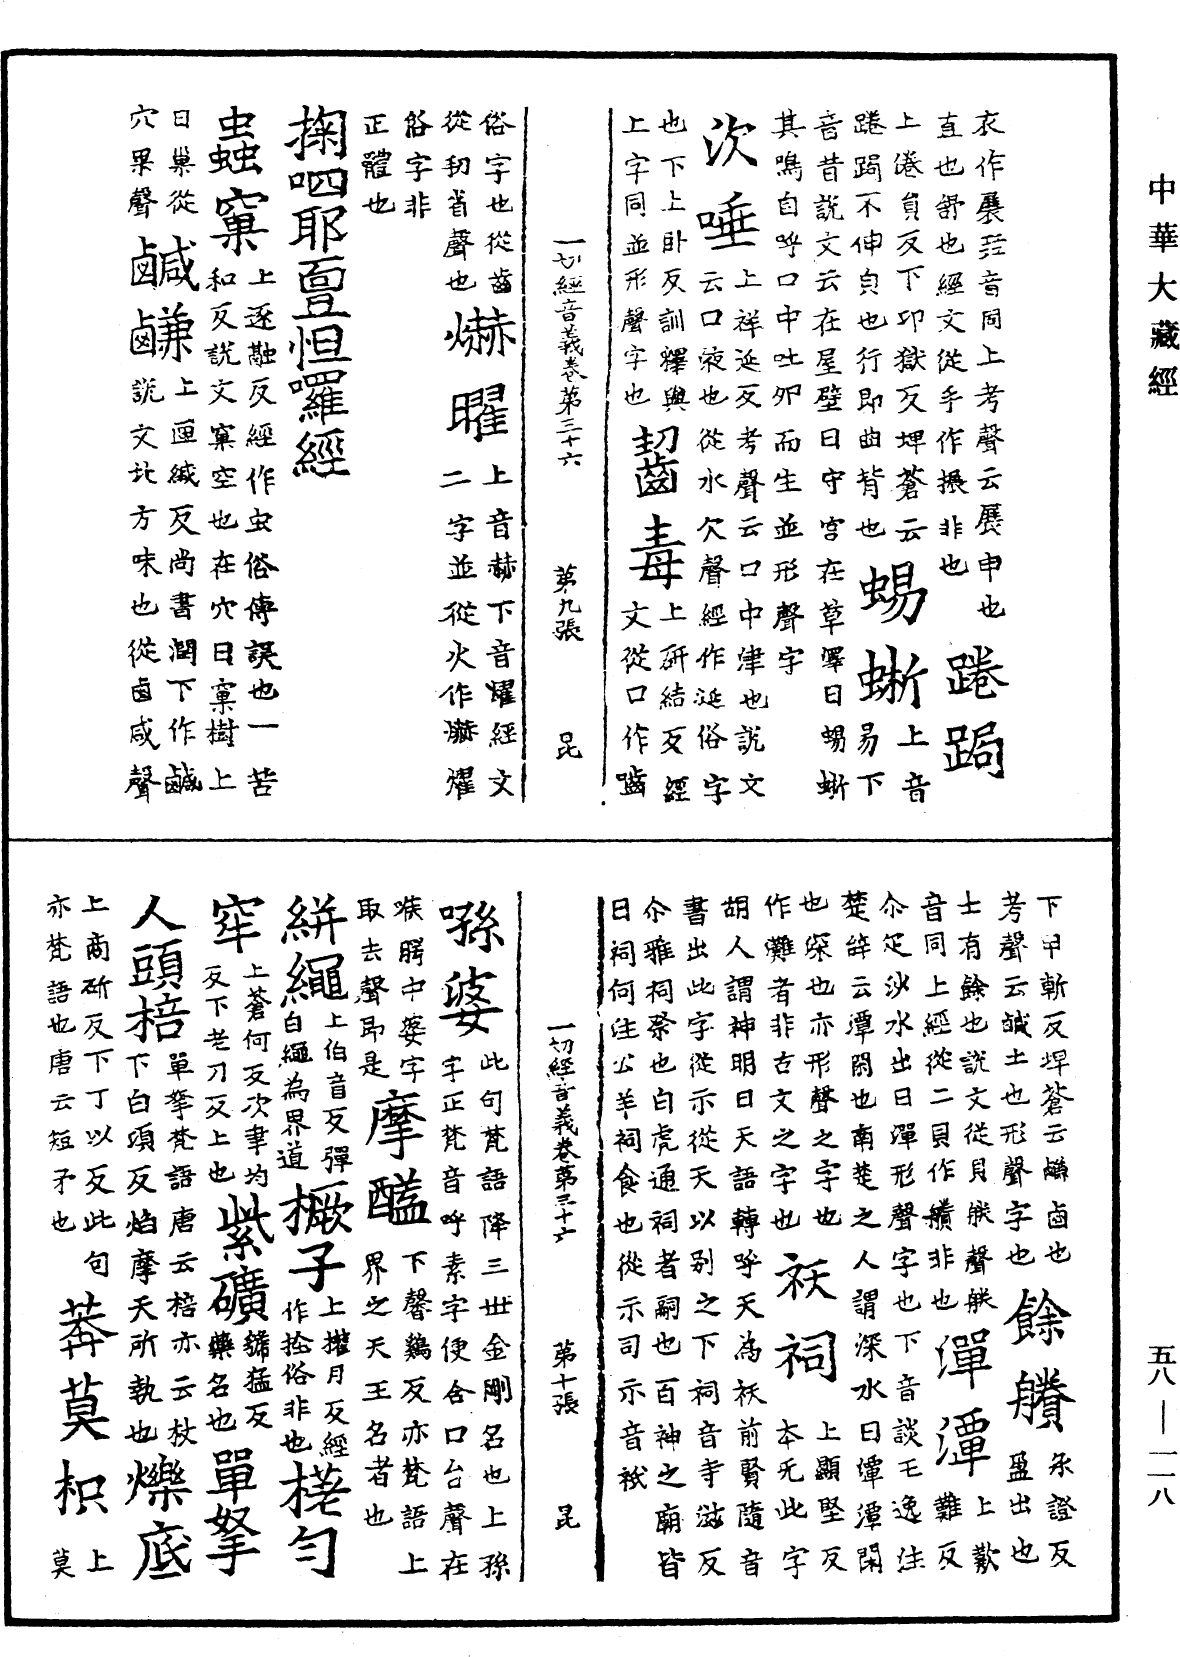 中華大藏經
衣作展㠭音同上考聲云展申也
直也舒也經文從手作搌非也 踡跼
上倦員反下卬獄反埤蒼云
踡跼不伸皃也行即曲背也 蜴蜥 上音易下
音昔說文云在屋壁曰守宮在草澤曰蜴蜥
其鳴自呼口中吐卵而生並形聲字
次唾 上祥延反考聲云口中津也說文
云口液也從水欠聲經作涎俗字
也下上臥反訓釋與
上字同並形聲字也 齧毒 上研結反經
文從口作嚙
一切經音義卷第三十六 第九張 昆
俗字也從齒
從㓞省聲也 爀曜 上音赫下音燿經文
二字並從火作爀燿
俗字非
正體也
掬呬耶亶怛囉經
蟲窠 上逐融反經作虫俗傳誤也一苦
和反說文窠空也在穴曰窠樹上
曰巢從
穴果聲 鹹鹻 上匣緘反尚書潤下作鹹
說文北方味也從鹵咸聲
下甲斬反埤蒼云鹻鹵也
考聲云鹹土也形聲字也 餘賸 承證反
盈出也
士有餘也說文從貝朕聲朕
音同上經從二貝作䞉非也 潬潭 上歎
難反
尒疋沙水出曰潬形聲字也下音談王逸注
楚辞云潭閑也南楚之人謂深水曰潬潭閑
也深也亦形聲之字也
作灘者非古文之字也 祅祠 上顯堅反
本无此字
胡人謂神明曰天語轉呼天為祅前賢隨音
書出此字從示從天以別之下祠音寺滋反
尒雅祠祭也白虎通祠者嗣也百神之廟皆
曰祠何注公羊祠食也從示司示音祇
一切經音義卷第三十六 第十張 昆
㗬婆 此句梵語降三世金剛名也上孫
字正梵音呼素字便合口台聲在
喉腭中婆字
取去聲即是 摩醯 下馨鷄反亦梵語上
界之天王名者也
絣繩 上伯音反彈
白繩為界道 橛子 上㩲月反經
作拴俗非也 㭯勻
上蒼何反次聿均
窂 反下老刀反上也 紫礦 虢猛反
藥名也 單拏
人頭棓 單拏梵語唐云棓亦云杖
下白項反焰摩天所執也 爍底
上商斫反下丁以反此句
亦梵語也唐云短矛也 莾莫枳 上
莫
五八—一一八